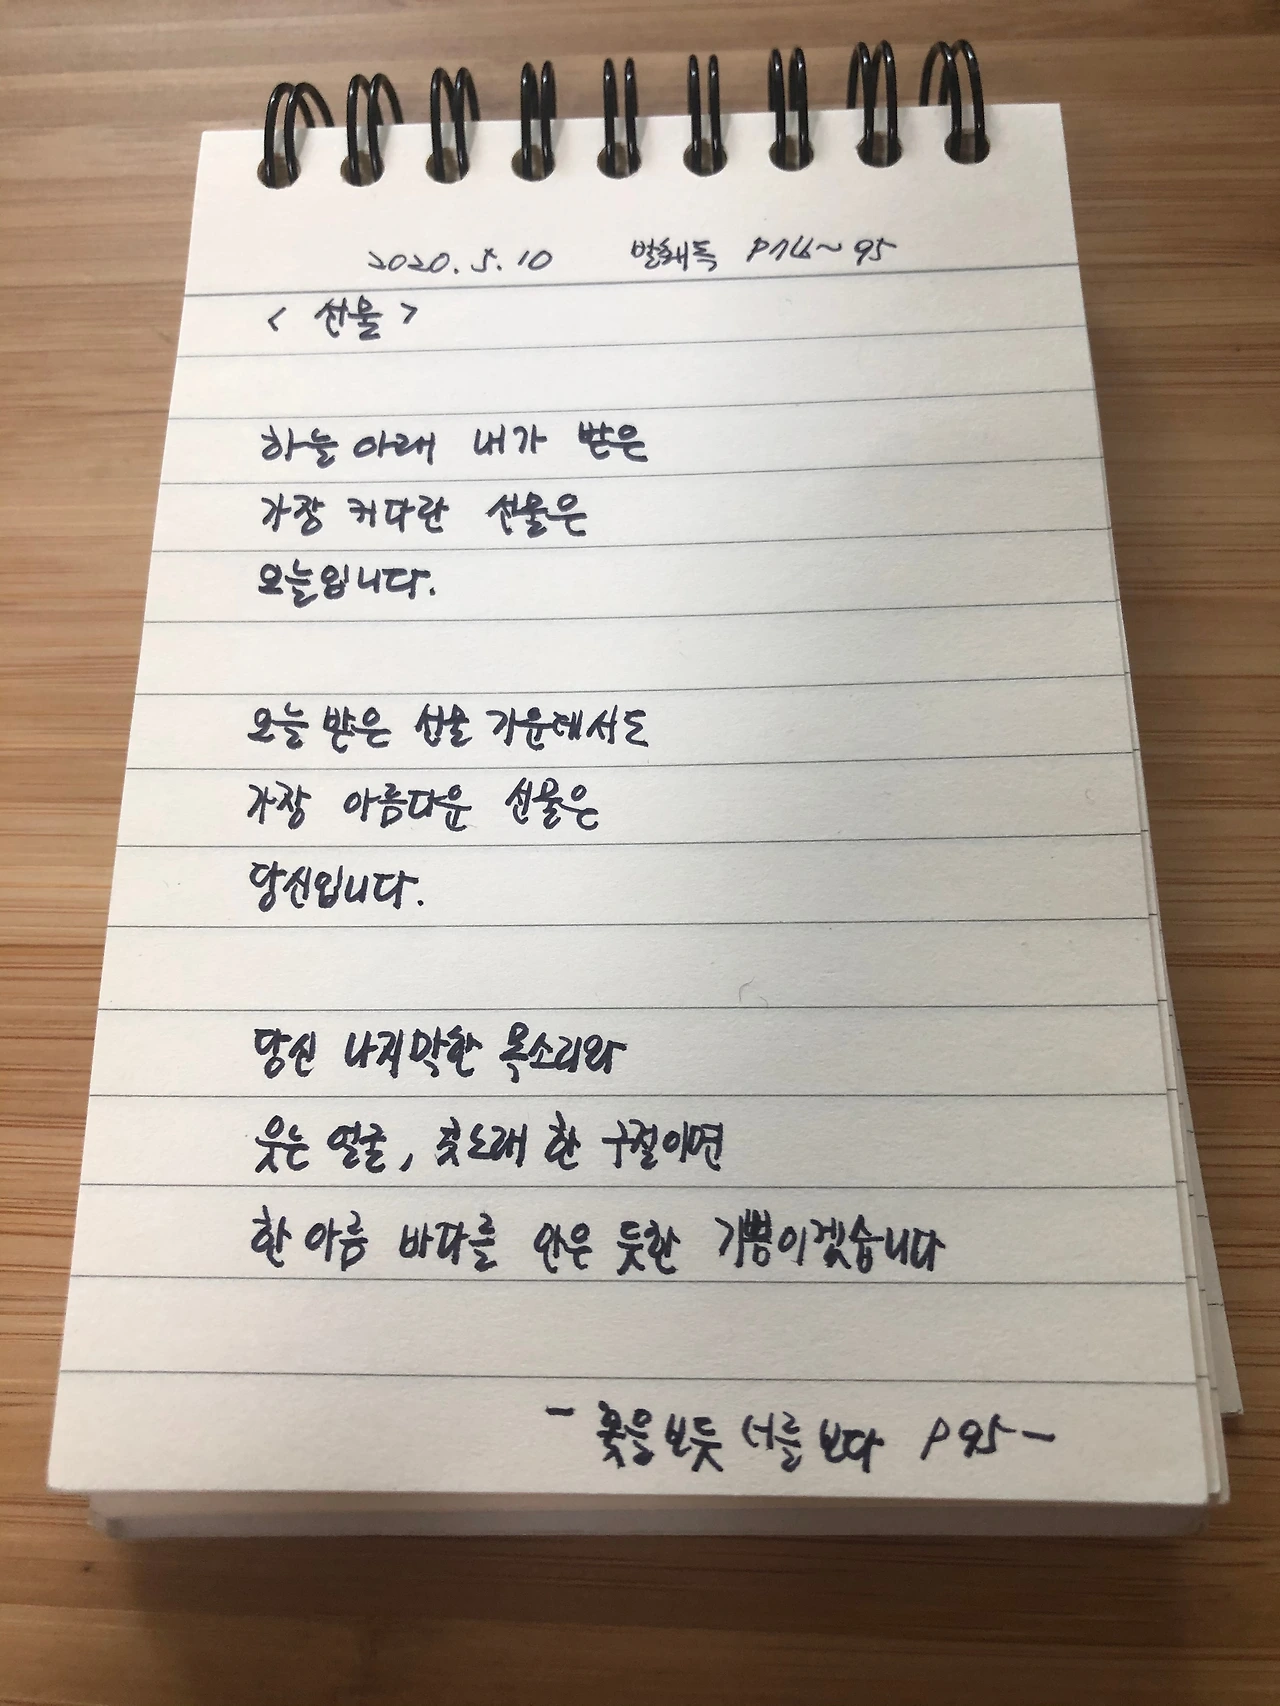 2020. 5. 10 발췌독 P76~95
< 선물 >
하늘 아래 내가 받은
가장 커다란 선물은
오늘입니다.
오늘 받은 선물 가운데서도
가장 아름다운 선물은
당신입니다.
당신 나지막한 목소리와
웃는 얼굴, 콧노래 한 구절이면
한 아름 바다를 안은 듯한 기쁨이겠습니다
- 꽃을 보듯 너를 보다 P95 -